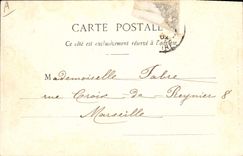 A
CARTE POSTALE
Ce côté est exclusivement réservé à l'adresse
Mademoiselle Fabre
rue Croix de Reynier 8
Marseille